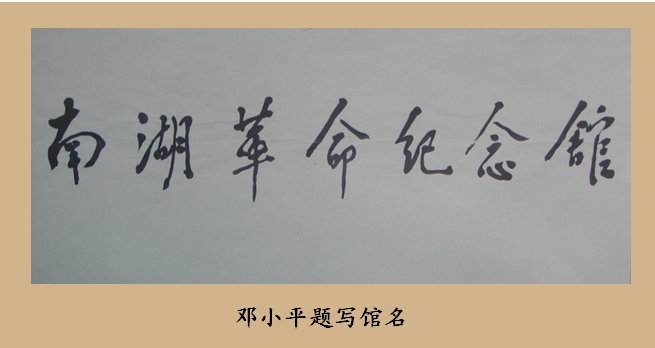 南湖革命纪念馆
邓小平题写馆名